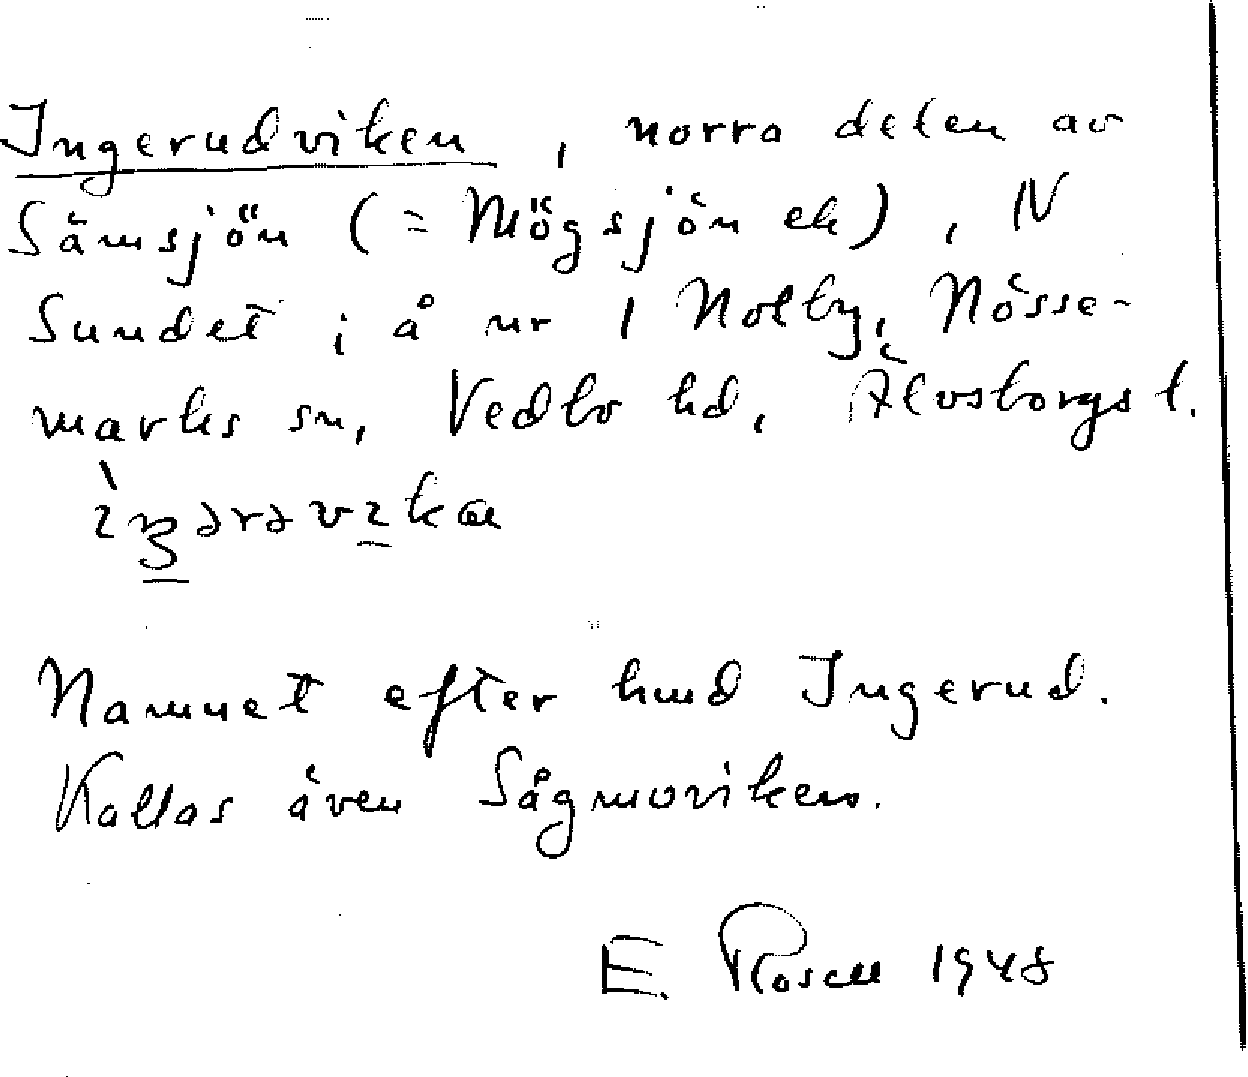 Ingerudviken, norra delen av
Sämsjön (= Mögsjön ek), N
Sundet i å nr 1 Nolby, Nösse-
marks sn, Vedbo hd, Älvsborgs l.
Namnet efter hmd Ingerud.
Kallas även Sågmoviken.
E. Rosell 1948